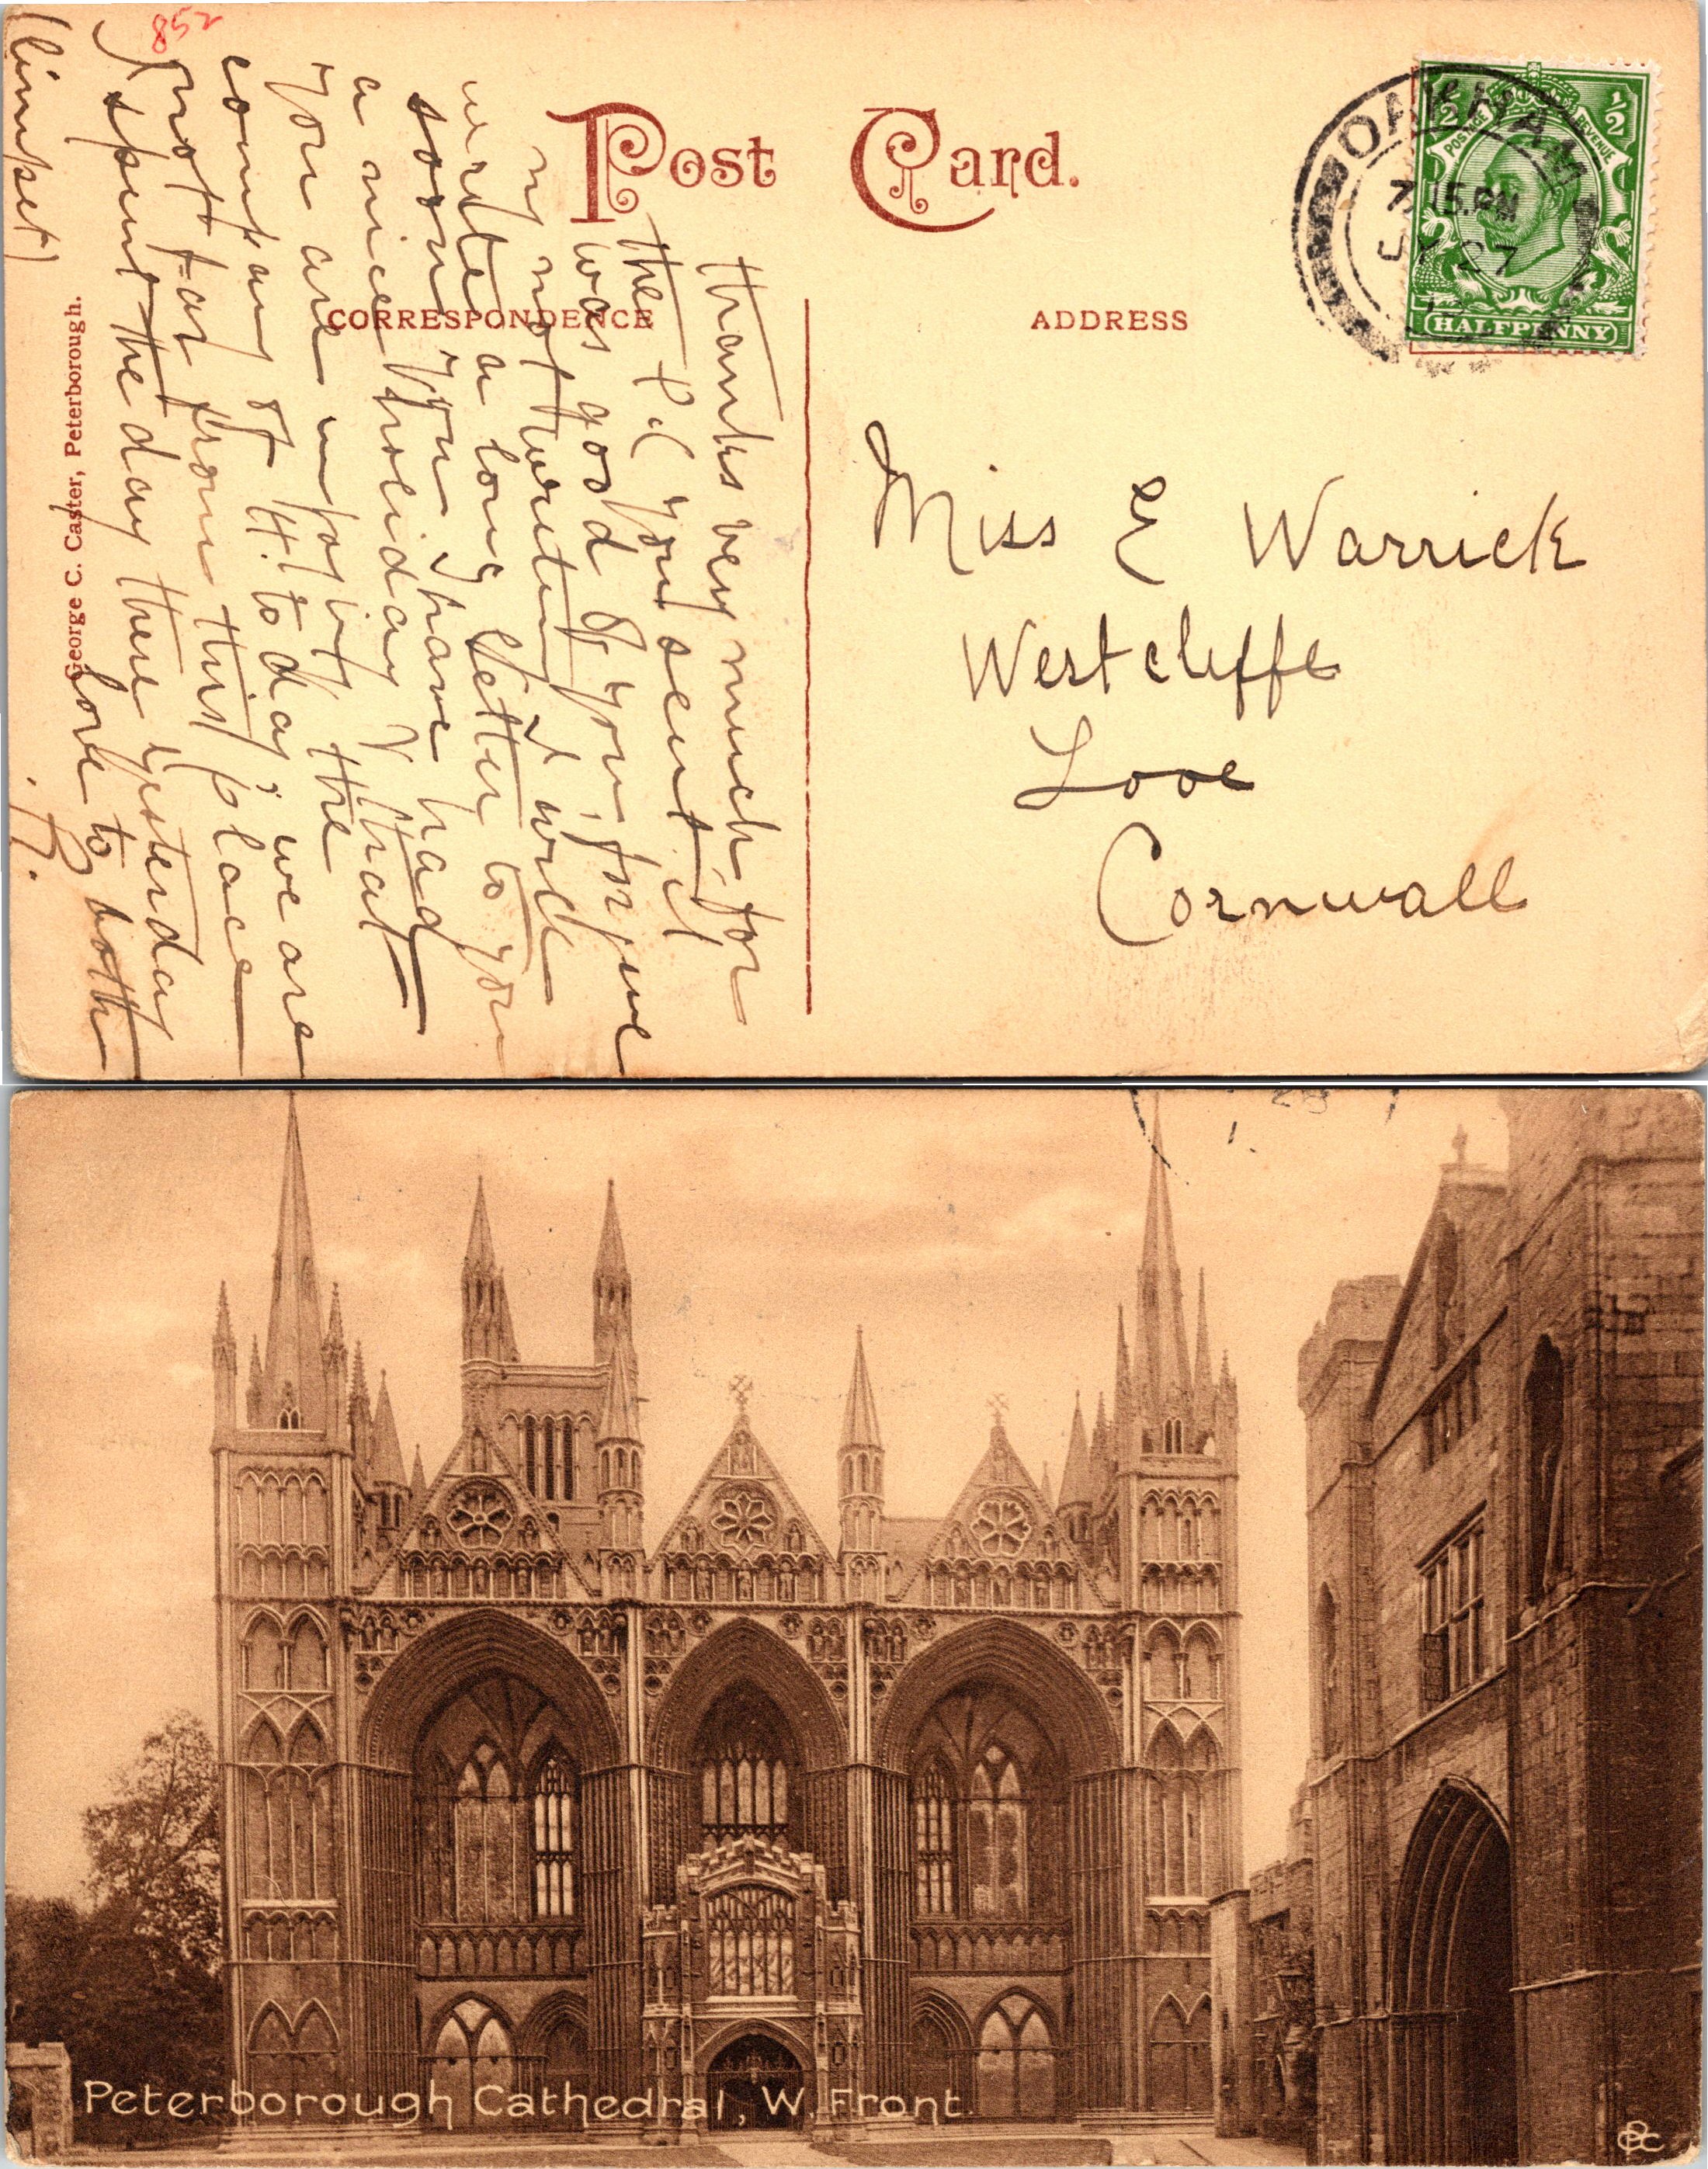 852
Post Card.
CORRESPONDENCE
ADDRESS
OAKHAM
7.15.PM
JY 27
½ ½
POSTAGE REVENUE
HALFPENNY
Thanks very much for
the P.C you sent it
was good of you, forgive
my not writing I will
write a long letter to you
soon you have had
a nice holiday & that
you are enjoying the
company of H. to day we are
not far from this place
I spent the day there yesterday
love to both
(limpet)
H.
George C. Caster, Peterborough.
Miss E Warrick
Westcliffe
Looe
Cornwall
Peterborough Cathedral, W. Front.